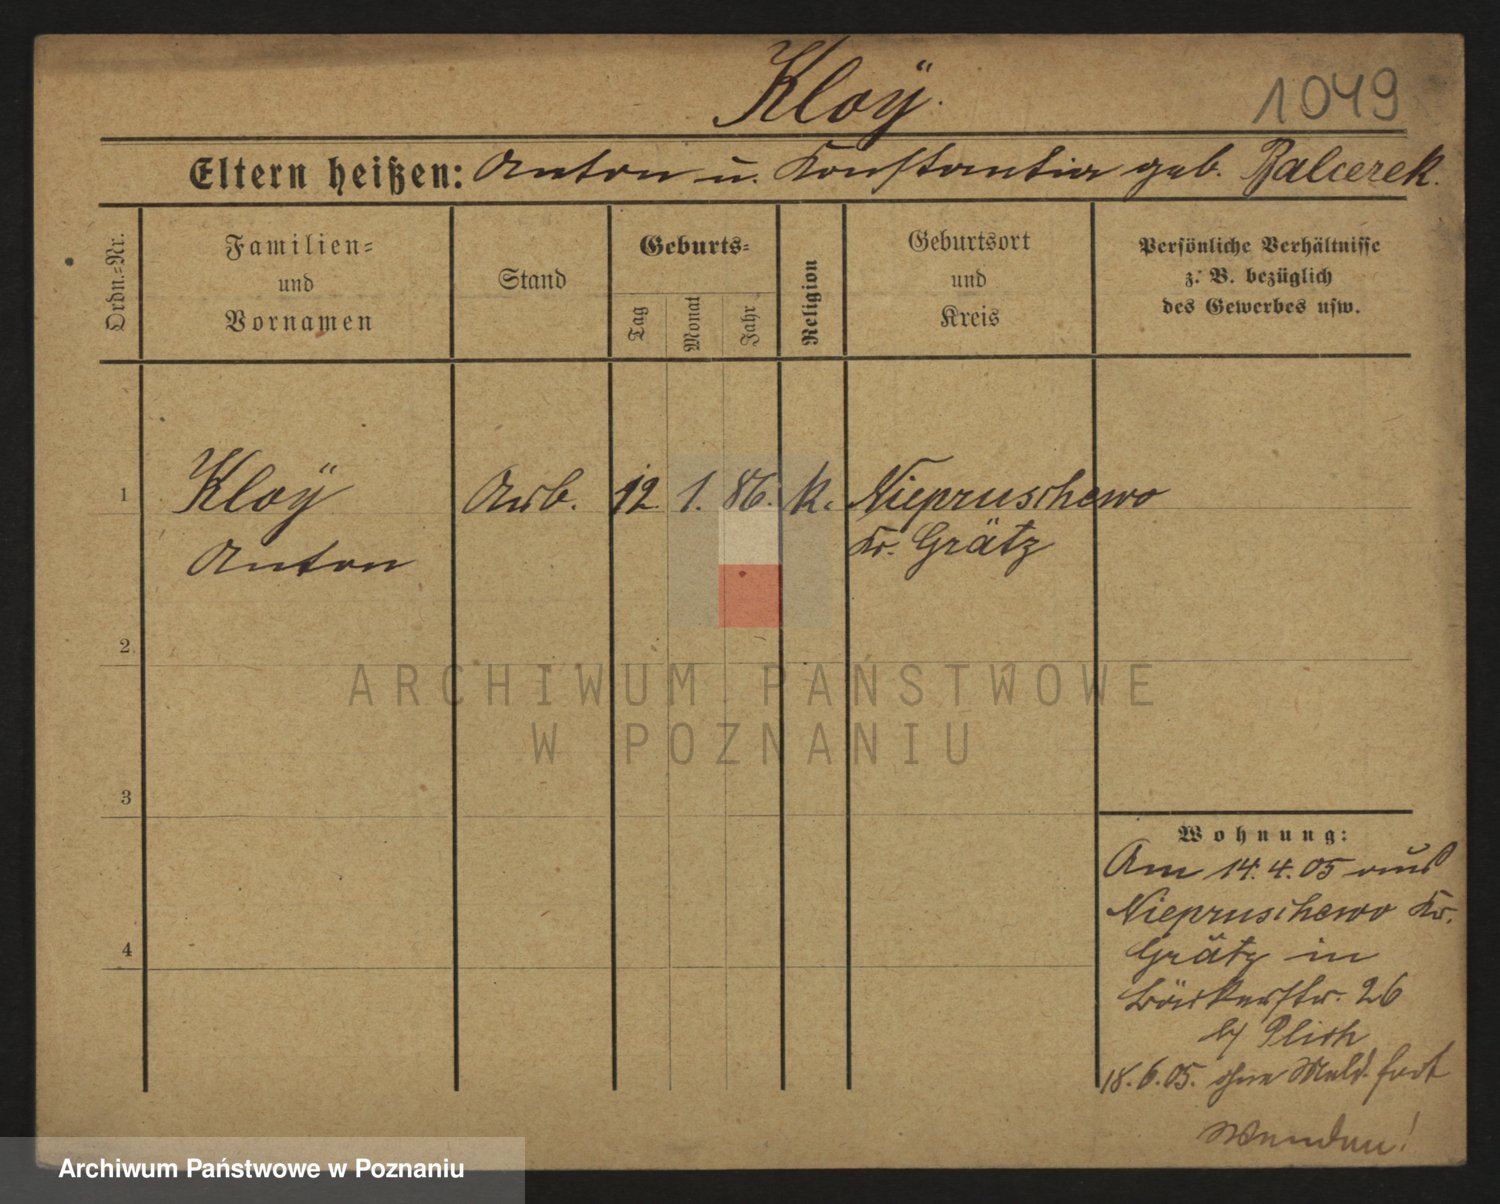 Kloÿ.
1049
Eltern heißen: Anton u. Konstantia geb. Balcerek.
Ordn.=Nr.
Familien=
und
Vornamen
Stand
Geburts=
Tag
Monat
Jahr
Religion
Geburtsort
und
Kreis
Persönliche Verhältnisse
z. B. bezüglich
des Gewerbes usw.
1 Kloÿ Arb. 12. 1. 86. k. Niepruschewo
Anton Kr. Grätz
2
3
4
Wohnung:
Am 14.4.05 aus
Niepruschewo Kr.
Grätz in
Bäckerstr. 26
b/
18.6.05. ohne Meld. fort
Wenden!
ARCHIWUM PAŃSTWOWE
W POZNANIU
Archiwum Państwowe w Poznaniu